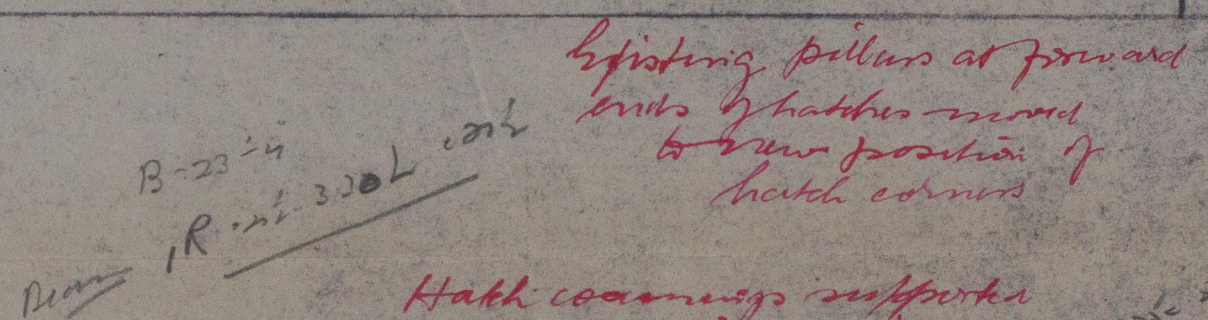 Existing pillars at forward
ends of hatches moved
to new position of
hatch corners
B = 23'-4"
Hatch coamings supported